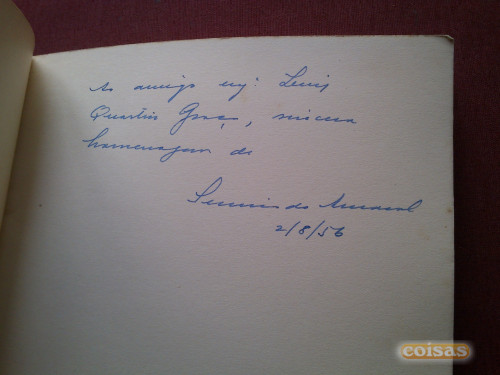 Ao amigo engº Luis
Quartin Graça, sincera
homenagem de
do Amaral
2/8/56
coisas